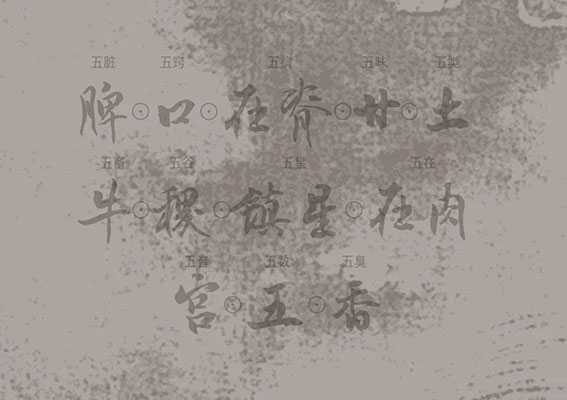 五脏 五窍 五病 五味 五类
脾 口 在脊 甘 土
五畜 五谷 五星 五在
牛 稷 镇星 在肉
五音 五数 五臭
宫 五 香